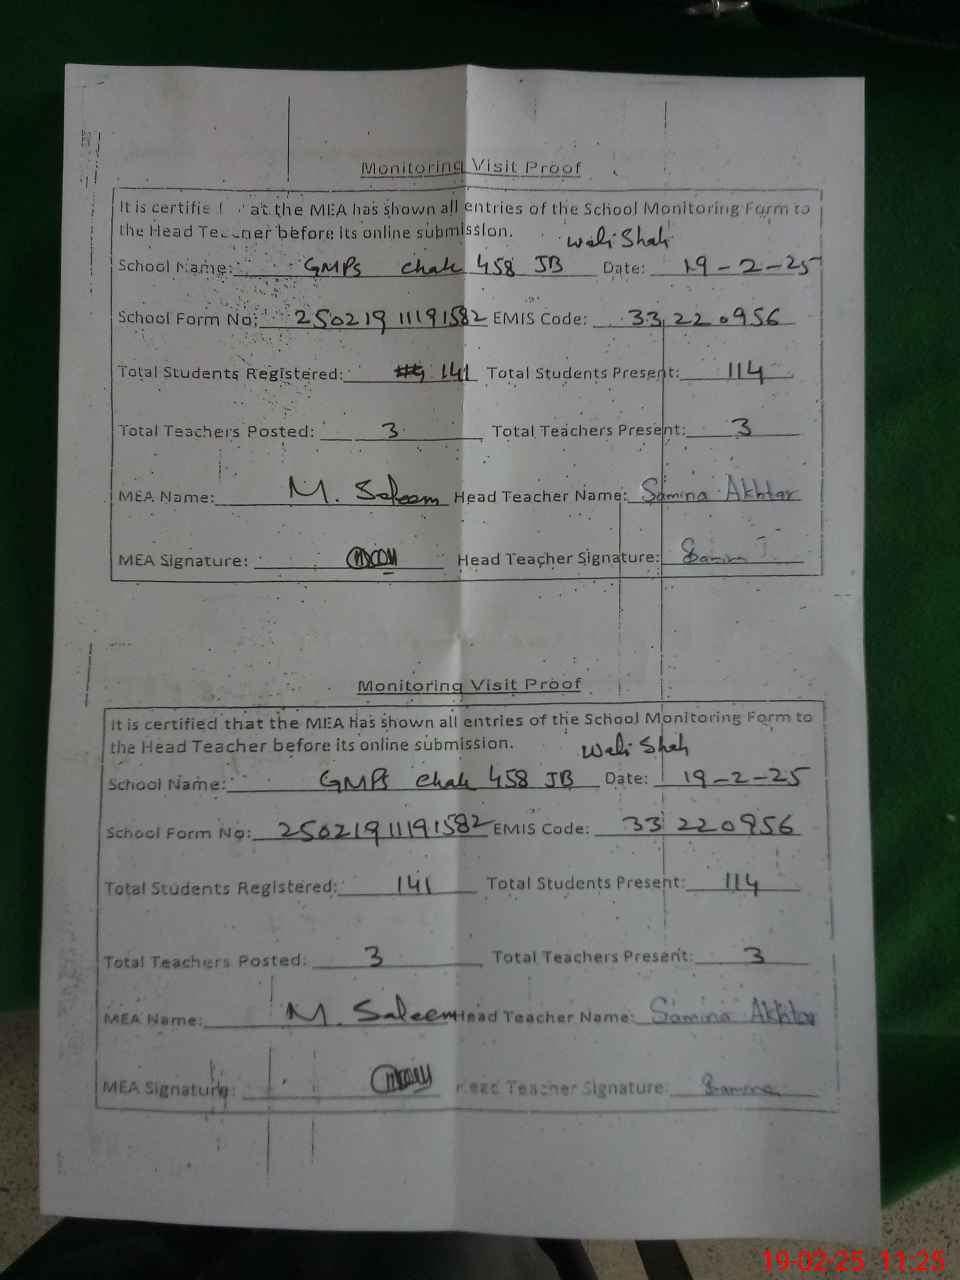 Monitoring Visit Proof
It is certifie at the MEA has shown all entries of the School Monitoring Form to
the Head Teacner before its online submission.
Wali Shah
School Name: GMPS Chak 458 JB Date: 19-2-25
School Form No: 25021911191582 EMIS Code: 33220956
Total Students Registered: 141 Total Students Present: 114
Total Teachers Posted: 3 Total Teachers Present: 3
MEA Name: M. Saleem Head Teacher Name: Samina Akhtar
MEA Signature: Head Teacher Signature:
Monitoring Visit Proof
It is certified that the MEA Has shown all entries of the School Monitoring Form to
the Head Teacher before its online submission.
Wali Shah
School Name: GMPS Chak 458 JB Date: 19-2-25
School Form No: 25021911191582 EMIS Code: 33220956
Total Students Registered: 141 Total Students Present: 114
Total Teachers Posted: 3 Total Teachers Present: 3
MEA Name: M. Saleem Head Teacher Name: Samina Akhtar
MEA Signature: Head Teacher Signature: Samina
19-02-25 11:25